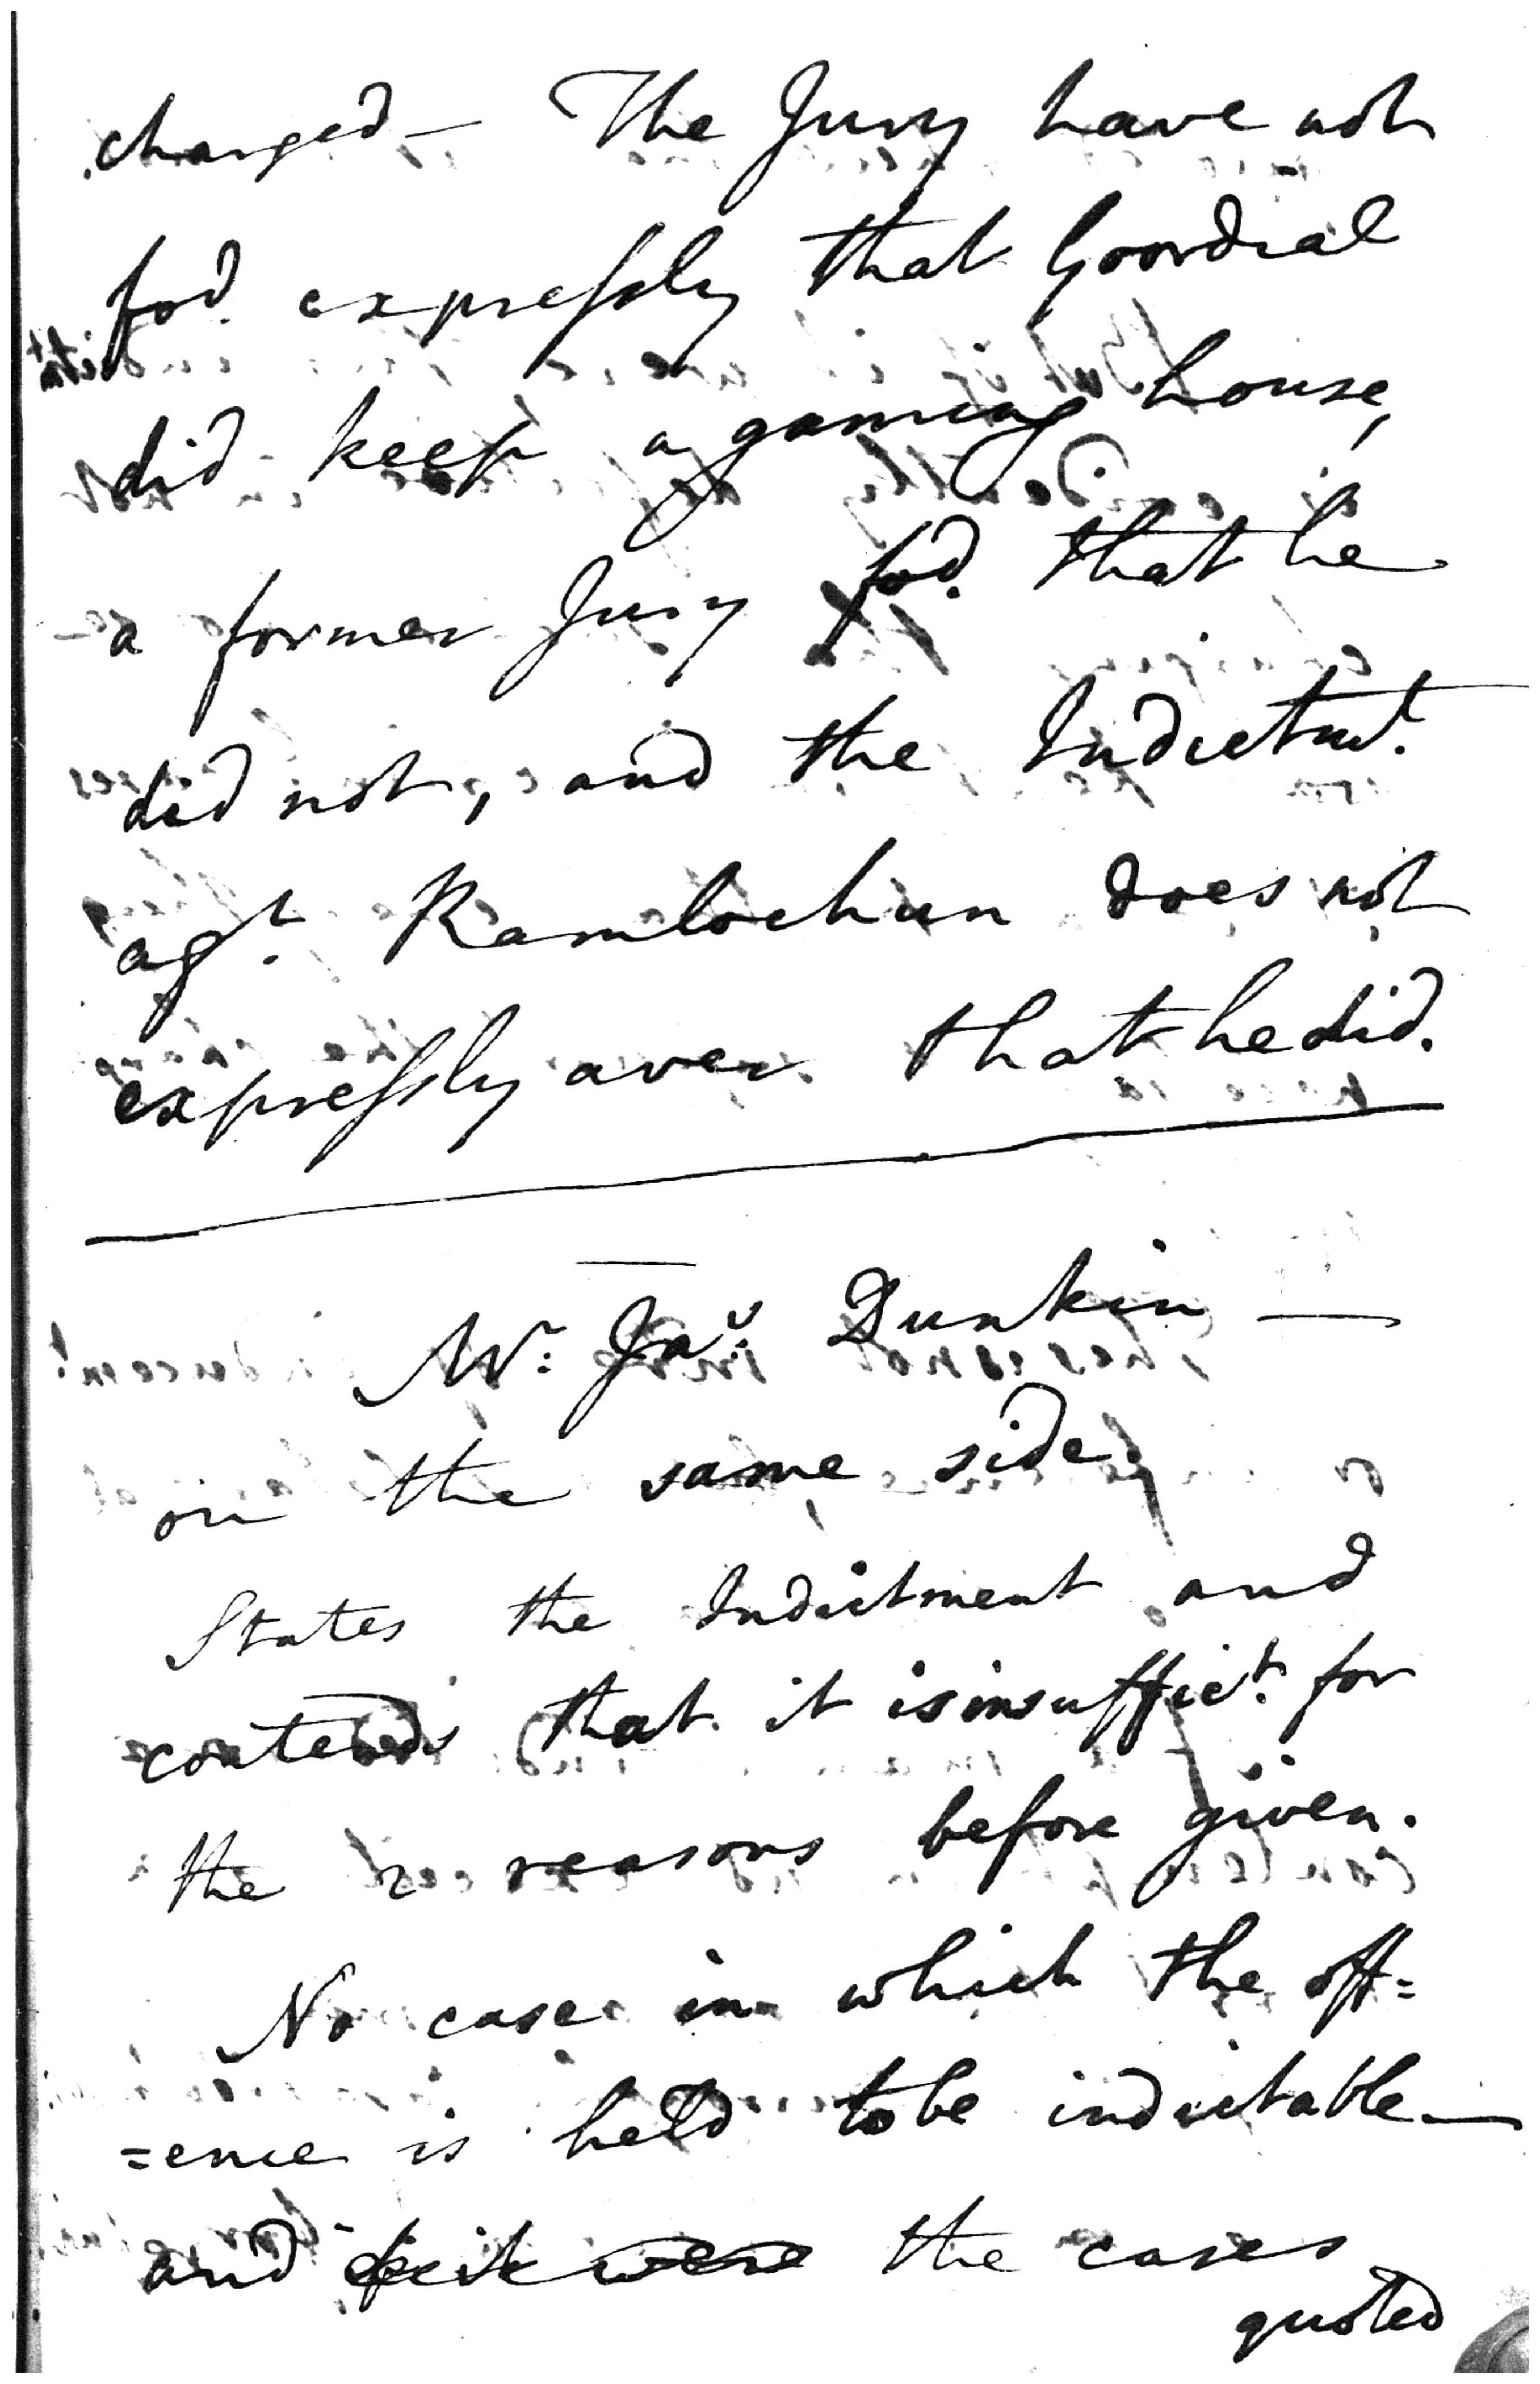 charged — The Jury have not
fod. expressly that Goordial
did keep a gaming house,
a former Jury fod. that he
did not, and the Indictmt.
agt. Ramlochun does not
expressly aver that he did.
Mr. Jas. Dunkin —
on the same side.
States the Indictment and
contends that it is insuffict. for
the 2 reasons before given.
No case in which the off=
=ence is held to be indictable —
and if it were the cases
quoted